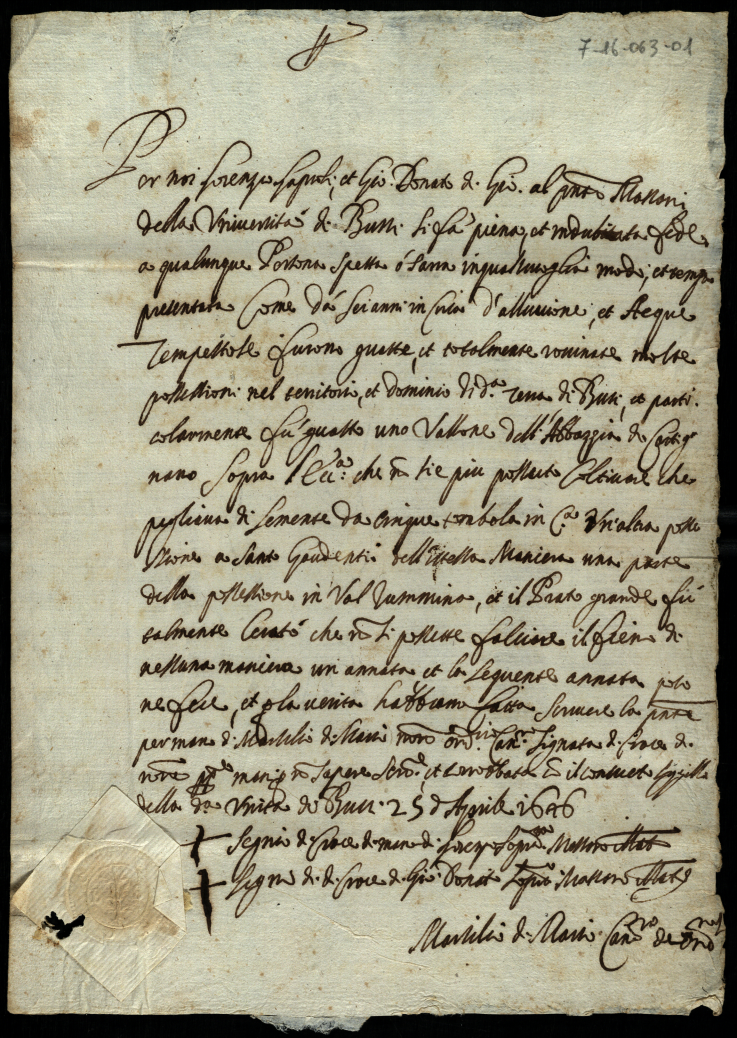 7-16-063-01
Per noi Lorenzo et Gio: Donato di Gio: al pnte Massari
della Università di Bussi si fa piena, et indubitata fede
a qualunque Persona spetta ò sarrà in qualsivoglia modo, et tempo
presentata Come da sei anni in Circa d'alluvione, et Acque
Tempestose furono guaste, et totalmente rovinate molte
possessioni nel territorio, et dominio di d.a Terra di Bussi, et parti-
colarmente fù guasto uno Vallone dell'Abbazzia di Cartig
nano sopra che nō si è più possuto Coltivare che
pigliava di semente da cinque tombola in C.a Un'altra posse
ssione a Santo Gaudentio dell'istessa Maniera una parte
della possessione in Val Jummina, et il Prato grande fù
talmente che nō si possette falciare il fieno di
nessuna maniera un'annata et la sequente annata poco
ne fece, et p la verita habbiamo fatta scrivere la pnte
per mano di Massilio de Massi nostro ord.rio Canc.re signata di Croce di
nre pp.e mani p nō sapere scrivere, et roborata cō il consueto sigillo
della d.a Unità de Bussi 25 d'Aprile 1646
+ Segno di Croce di mano di Lorenzo Massaro
+ Segno di Croce di Gio: Donato Massaro
Massilio de Massi Canc.ro de ord.